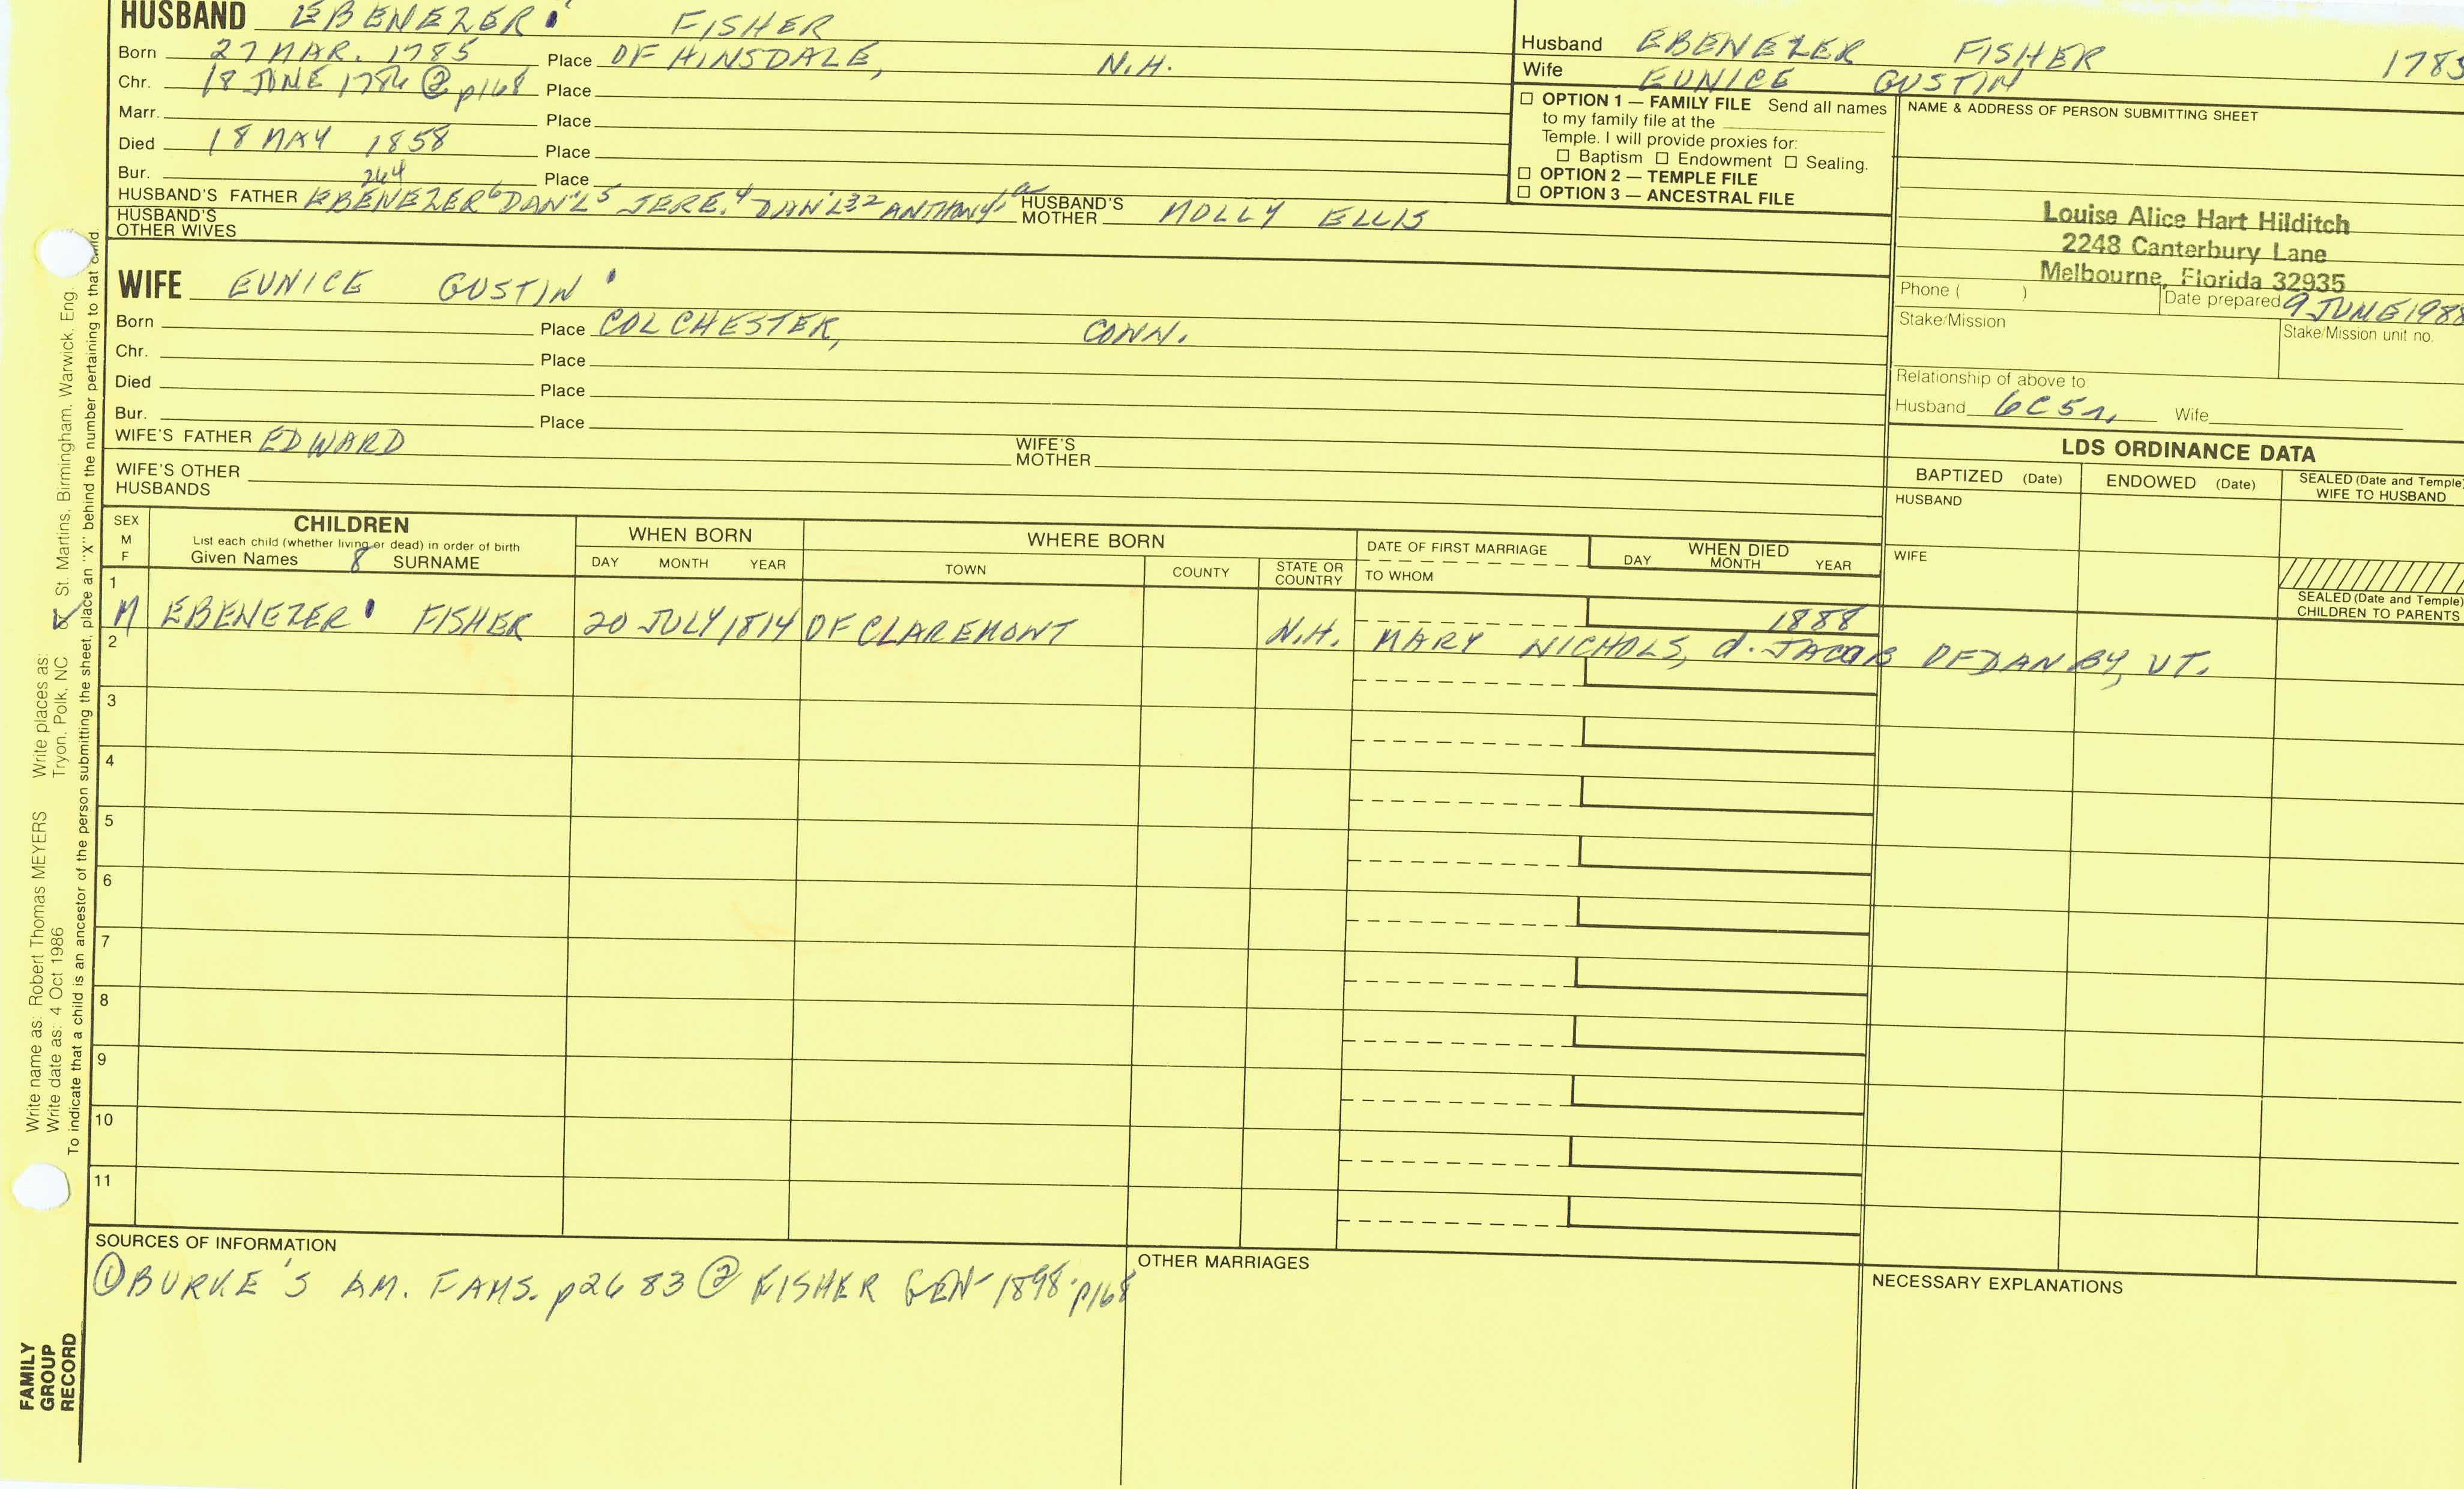 HUSBAND EBENEZER¹ FISHER
Born 27 MAR. 1785 Place OF HINSDALE, N.H.
Chr. 18 JUNE 1786 @ p168 Place
Marr. Place
Died 18 MAY 1858 Place
Bur. 264 Place
HUSBAND'S FATHER EBENEZER⁶ DAN'L⁵ JERE.⁴ DAN'L³² ANTHONY¹ HUSBAND'S MOTHER MOLLY ELLIS
HUSBAND'S OTHER WIVES
Husband EBENEZER FISHER 1785
Wife EUNICE GUSTIN
☐ OPTION 1 — FAMILY FILE Send all names
to my family file at the
Temple. I will provide proxies for:
☐ Baptism ☐ Endowment ☐ Sealing.
☐ OPTION 2 — TEMPLE FILE
☐ OPTION 3 — ANCESTRAL FILE
NAME & ADDRESS OF PERSON SUBMITTING SHEET
Louise Alice Hart Hilditch
2248 Canterbury Lane
Melbourne, Florida 32935
Phone ( ) Date prepared 9 JUNE 1988
Stake/Mission Stake/Mission unit no.
Relationship of above to:
Husband 6C5r, Wife
WIFE EUNICE GUSTIN¹
Born Place COLCHESTER, CONN.
Chr. Place
Died Place
Bur. Place
WIFE'S FATHER EDWARD WIFE'S MOTHER
WIFE'S OTHER HUSBANDS
LDS ORDINANCE DATA
BAPTIZED (Date) ENDOWED (Date) SEALED (Date and Temple) WIFE TO HUSBAND
HUSBAND
WIFE
SEALED (Date and Temple) CHILDREN TO PARENTS
SEX M F
CHILDREN
List each child (whether living or dead) in order of birth
Given Names 8 SURNAME
WHEN BORN
DAY MONTH YEAR
WHERE BORN
TOWN COUNTY STATE OR COUNTRY
DATE OF FIRST MARRIAGE
TO WHOM
WHEN DIED
DAY MONTH YEAR
1
M EBENEZER¹ FISHER 20 JULY 1814 OF CLAREMONT N.H. 1888
MARY NICHOLS, d. JACOB OF DANBY, VT.
2
3
4
5
6
7
8
9
10
11
SOURCES OF INFORMATION
① BURKE'S AM. FAMS. p2683 ② FISHER GEN-1898·p168
OTHER MARRIAGES
NECESSARY EXPLANATIONS
Write name as: Robert Thomas MEYERS Write places as: St. Martins, Birmingham, Warwick, Eng.
Write date as: 4 Oct 1986 Tryon, Polk, NC or
To indicate that a child is an ancestor of the person submitting the sheet, place an "X" behind the number pertaining to that child.
FAMILY
GROUP
RECORD